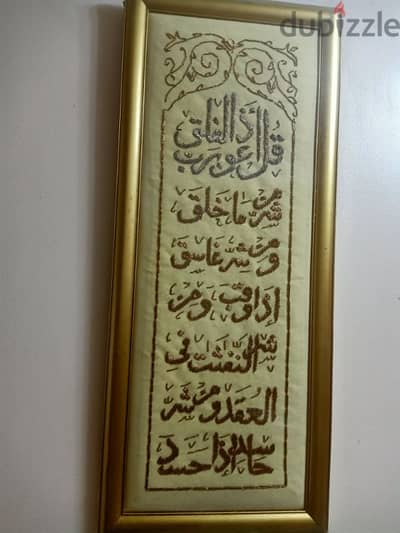 dubizzle
قل أعوذ برب الفلق
من شر ما خلق
ومن شر غاسق
إذا وقب ومن
شر النفثت في
العقد ومن شر
حاسد إذا حسد